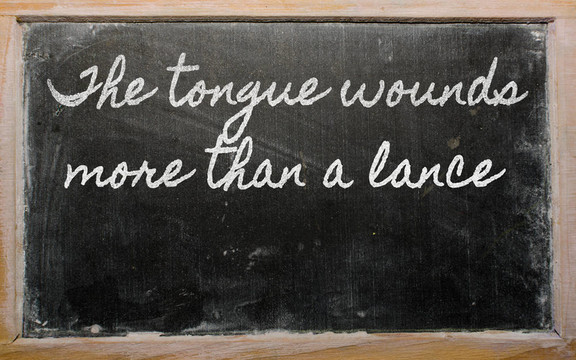 The tongue wounds
more than a lance